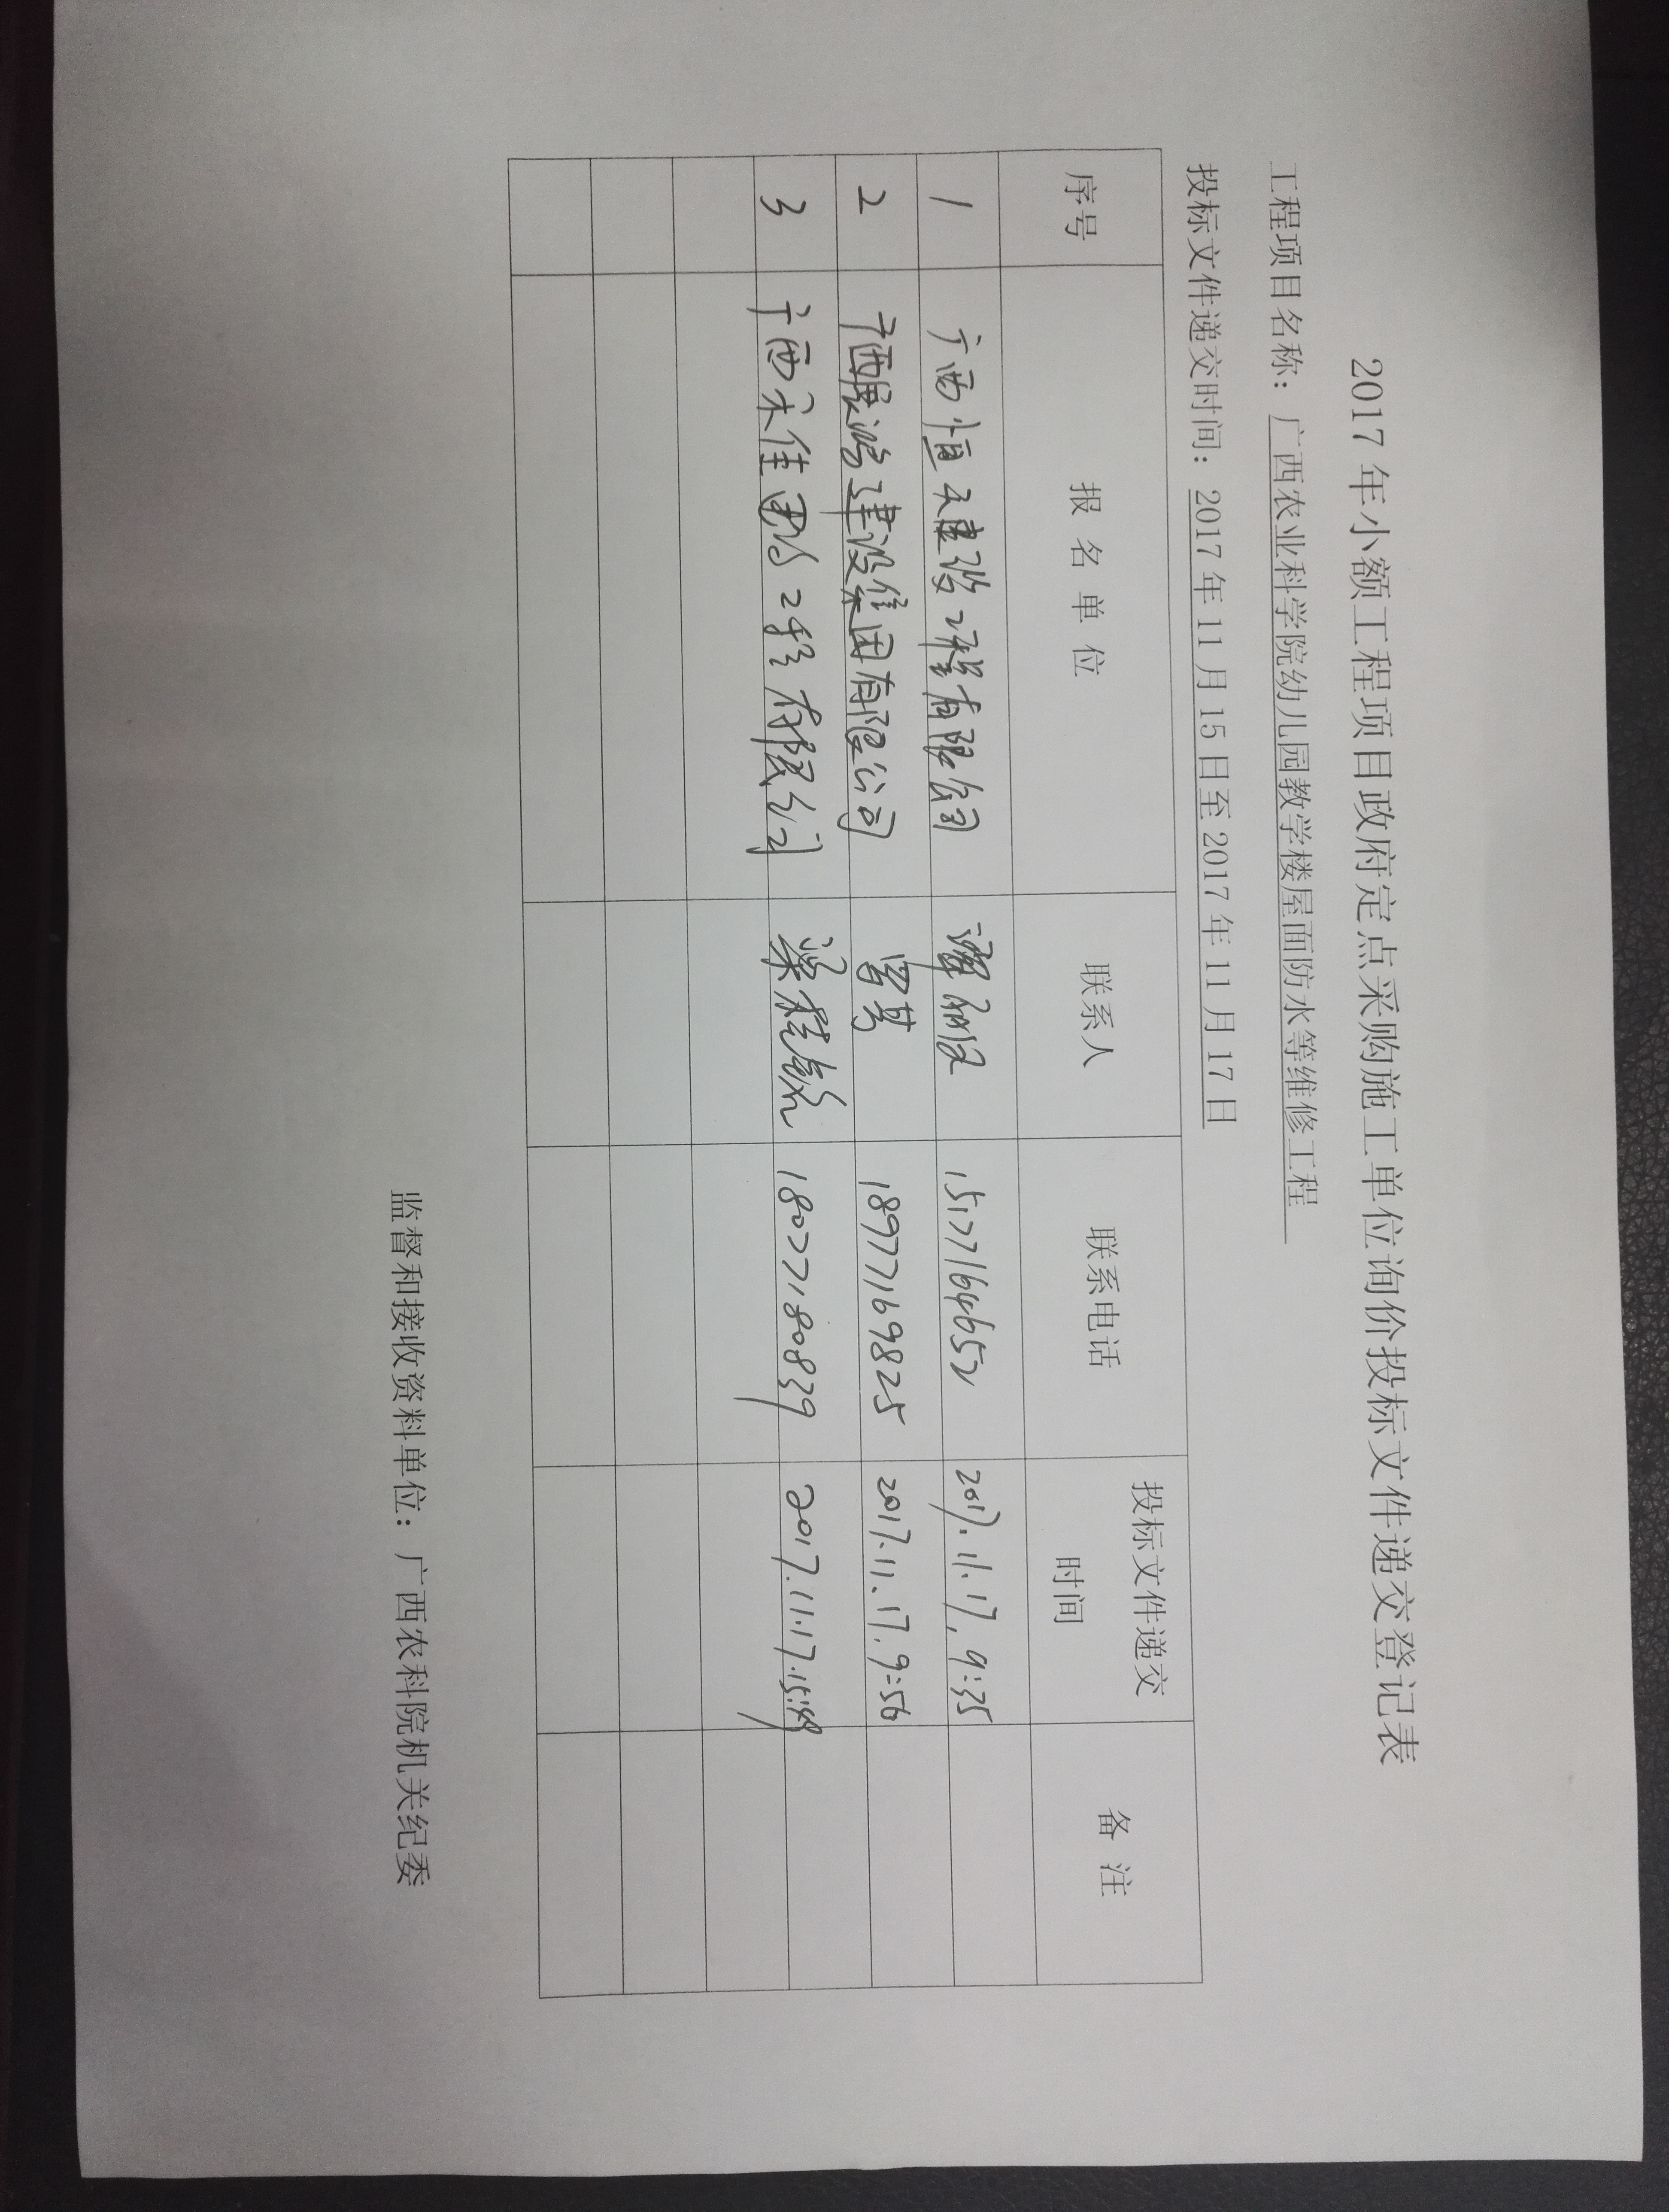 2017 年小额工程项目政府定点采购施工单位询价投标文件递交登记表
工程项目名称：广西农业科学院幼儿园教学楼屋面防水等维修工程
投标文件递交时间：2017 年 11 月 15 日至 2017 年 11 月 17 日
序号 报 名 单 位 联系人 联系电话 投标文件递交时间 备 注
1 广西恒天建设工程有限公司 15177164652 2017.11.17. 9:35
2 广西展鸿建设集团有限公司 曾茑 18977169825 2017.11.17. 9:56
3 广西禾佳园林工程有限公司 梁桂 18077180839 2017.11.17. 15:49
监督和接收资料单位：广西农科院机关纪委